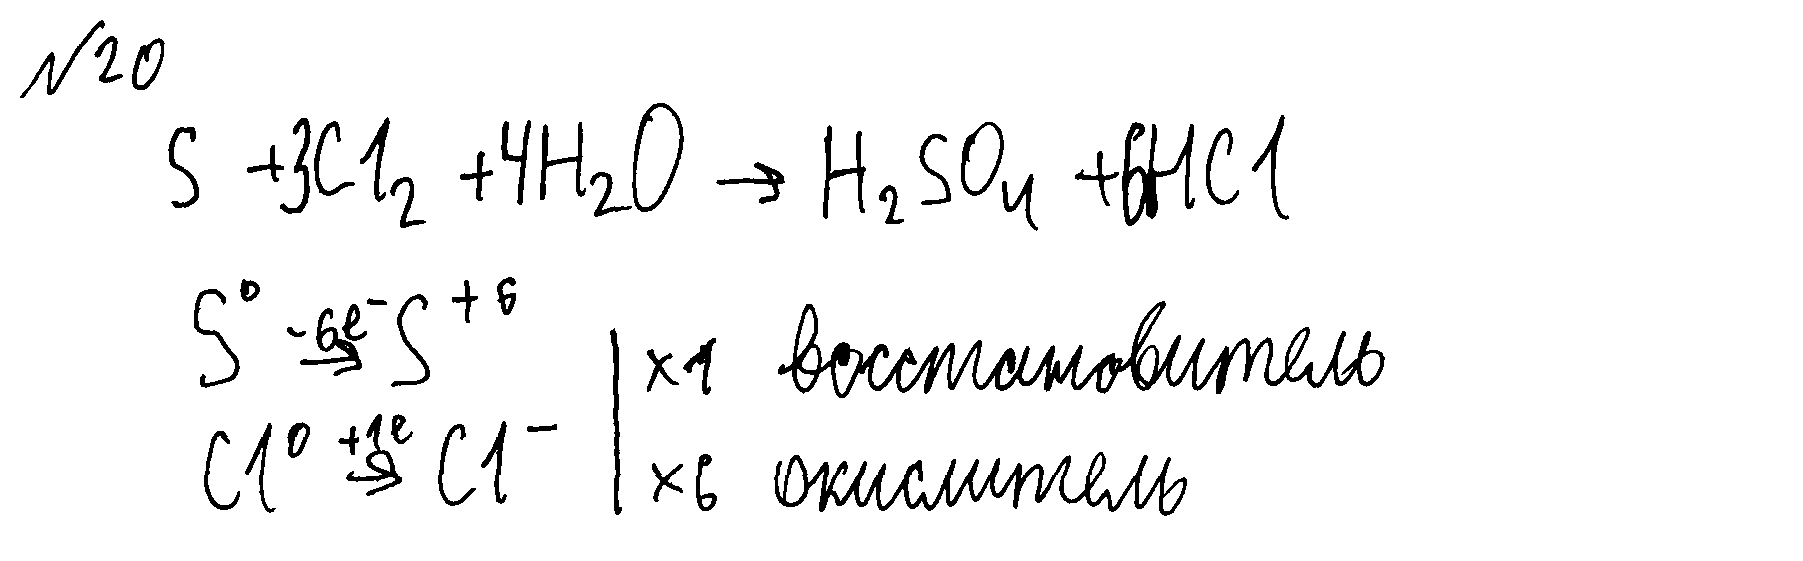 №20
S + 3Cl₂ + 4H₂O → H₂SO₄ + 6HCl
S⁰ -6e⁻→ S⁺⁶ | ×1 восстановитель
Cl⁰ +1e→ Cl⁻ | ×6 окислитель